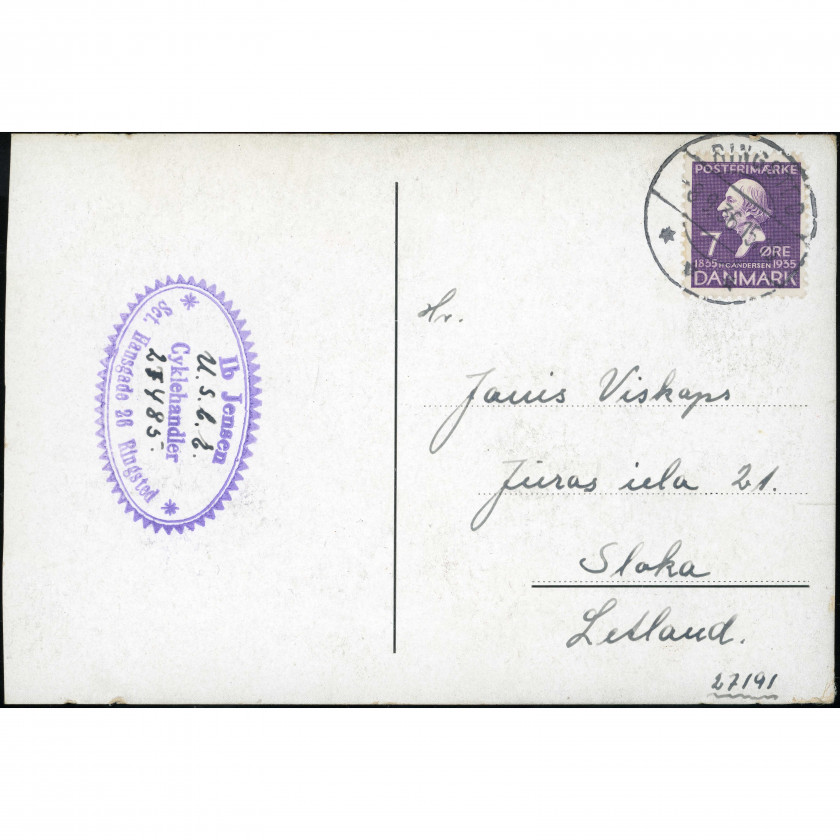 Ib Jensen
U.S.b.E.
Cyklehandler
27485.
Sct. Hansgade 26 Ringsted
POSTFRIMÆRKE
7
ØRE
1835 H.C.ANDERSEN 1935
DANMARK
Hr.
Janis Viskaps
Jūras iela 21.
Sloka
Letland.
27191